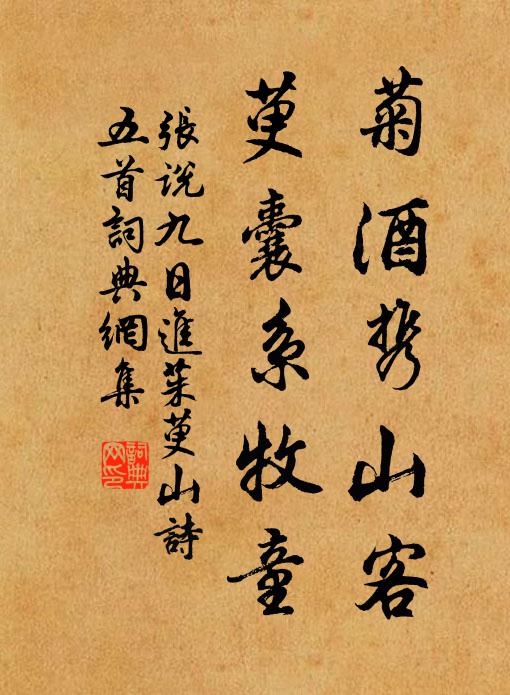 菊酒携山客
萸囊系牧童
張説九日進茱萸山詩
五首詞典網集
詞典網印